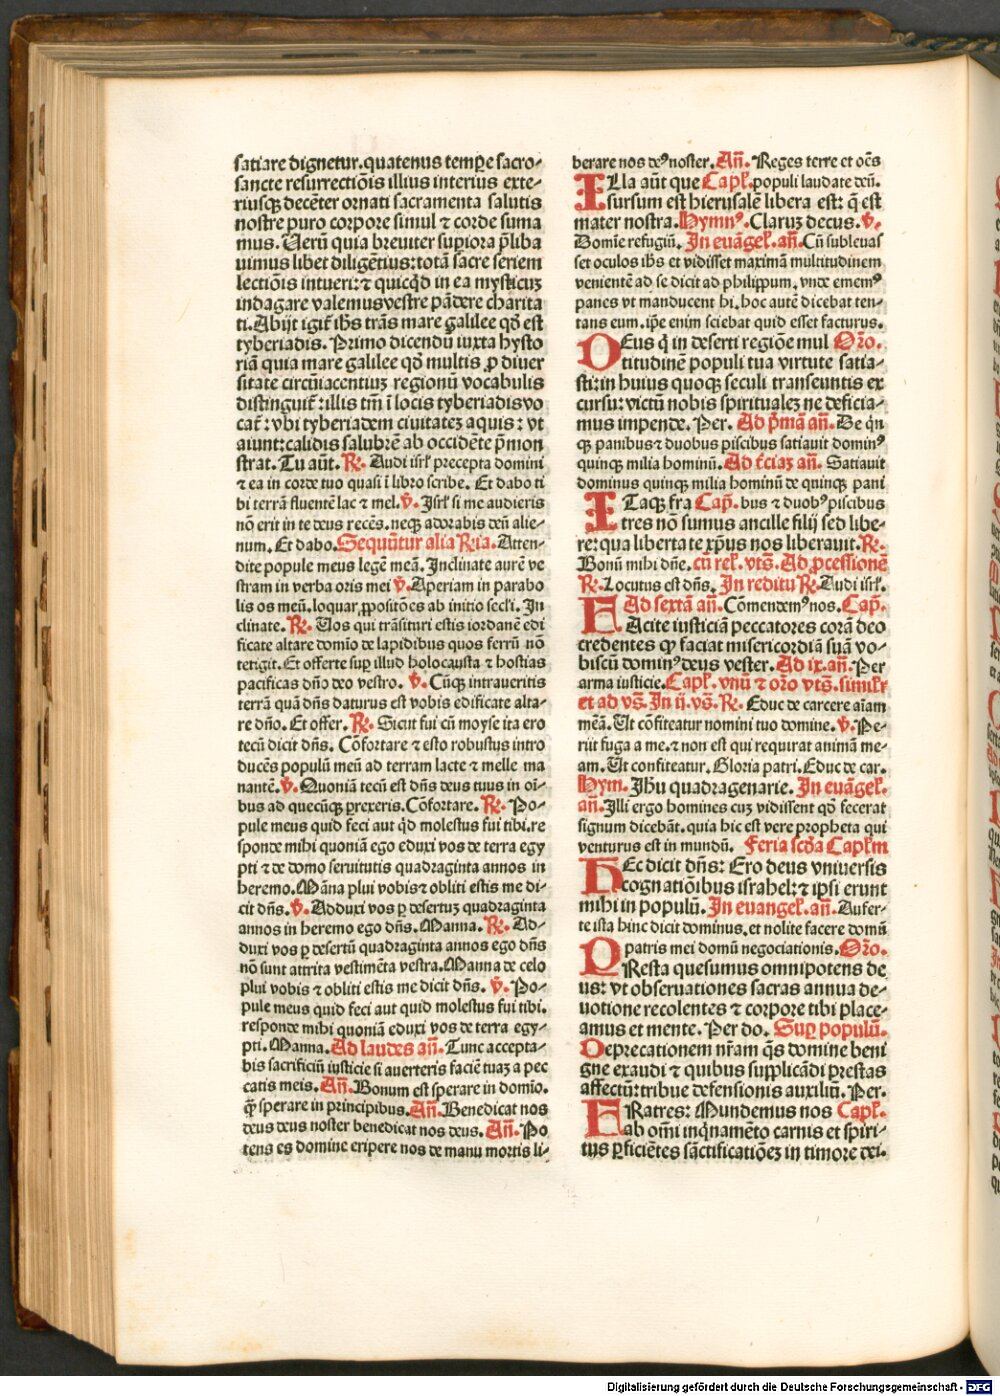 satiare dignetur. quatenus temꝑe sacro-
sancte resurrectiōis illius interius exte-
riusqꝫ decēter ornati sacramenta salutis
nostre puro corpore simul ⁊ corde suma
mus. Uerū quia breuiter supiora p̄liba
uimus libet diligētius: totā sacre seriem
lectiōis intueri: ⁊ quicq̇d in ea mysticuꝫ
indagare valemus vestre pādere charita
ti. Abijt igit̄ ihs̄ trās mare galilee qd̄ est
tyberiadis. Primo dicendū iuxta hysto
riā quia mare galilee qd̄ multis ꝓ diuer
sitate circūiacentiuꝫ regionū vocabulis
distinguit̄: illis tm̄ ī locis tyberiadis vo
cat̄: vbi tyberiadem ciuitateꝫ aquis: vt
aiunt: calidis salubrē ab occidēte p̄mon
strat. Tu aūt. R̄. Audi isrl̄ precepta domini
⁊ ea in corde tuo quasi ī libro scribe. Et dabo ti
bi terrā fluentē lac ⁊ mel. v̄. Isrl̄ si me audieris
nō erit in te deus recēs. neqꝫ adorabis deū alie-
num. Et dabo. Sequūtur alia R̄ia. Atten-
dite popule meus legē meā. Inclinate aurē ve
stram in verba oris mei v̄. Aperiam in parabo
lis os meū. loquar ꝓpositōes ab initio secl'i. In
clinate. R̄. Uos qui trāsituri estis iordanē edi
ficate altare domīo de lapidibus quos ferrū nō
tetigit. Et offerte suꝑ illud holocausta ⁊ hostias
pacificas dn̄o deo vestro. v̄. Cūqꝫ intraueritis
terrā quā dn̄s daturus est vobis edificate alta-
re dn̄o. Et offer. R̄. Sicut fui cū moyse ita ero
tecū dicit dn̄s. Cōfortare ⁊ esto robustus intro
ducēs populū meū ad terram lacte ⁊ melle ma
nantē. v̄. Quoniā tecū est dn̄s deus tuus in oī-
bus ad quecūqꝫ prexeris. Cōfortare. R̄. Po-
pule meus quid feci aut q̇d molestus fui tibi. re
sponde mihi quoniā ego eduxi vos de terra egy
pti ⁊ de domo seruitutis quadraginta annos in
heremo. Māna plui vobis ⁊ obliti estis me di-
cit dn̄s. v̄. Adduxi vos ꝑ desertuꝫ quadraginta
annos in heremo ego dn̄s. Manna. R̄. Ad-
duxi vos ꝑ desertū quadraginta annos ego dn̄s
nō sunt attrita vestimēta vestra. Manna de celo
plui vobis ⁊ obliti estis me dicit dn̄s. v̄. Po-
pule meus quid feci aut quid molestus fui tibi.
responde mihi quoniā eduxi vos de terra egy-
pti. Manna. Ad laudes an̄. Tunc accepta-
bis sacrificiū iusticie si auerteris faciē tuaꝫ a pec
catis meis. An̄. Bonum est sperare in domīo.
qꝫ̄ sperare in principibus. An̄. Benedicat nos
deus deus noster benedicat nos deus. An̄. Po
tens es domine eripere nos de manu mortis li-
berare nos de⁹ noster. An̄. Reges terre et oēs
ILla aūt que Capl'. populi laudate deū.
sursum est hierusalē libera est: q̄ est
mater nostra. Hymn⁹. Claruꝫ decus. v̄.
Domīe refugiū. In euāgel'. an̄. Cū subleuas
set oculos ih̄s et vidisset maximā multitudinem
venientē ad se dicit ad philippum. vnde emem⁹
panes vt manducent hi. hoc autē dicebat ten-
tans eum. iꝑe enim sciebat quid esset facturus.
DEus q̇ in deserti regiōe mul Or̄o.
titudinē populi tua virtute satia-
sti: in huius quoqꝫ seculi transeuntis ex
cursu: victū nobis spiritualeꝫ ne deficia-
mus impende. Per. Ad p̄mā an̄. De q̇n
qꝫ panibus ⁊ duobus piscibus satiauit domin⁹
quinqꝫ milia hominū. Ad t̄ciaꝫ an̄. Satiauit
dominus quinqꝫ milia hominū de quinqꝫ pani
ITaqꝫ fra Cap̄. bus ⁊ duob⁹ piscibus
tres nō sumus ancille filij sed libe-
re: qua libertate xp̄us nos liberauit. R̄.
Bonū mihi dn̄e. cū rel'. vts̄. Ad ꝓcessionē
R̄. Locutus est dn̄s. In reditu R̄. Audi isrl̄.
Ad sextā an̄. Cōmendem⁹ nos. Cap̄.
FAcite iusticiā peccatores corā deo
credentes qꝫ faciat misericordiā suā vo-
biscū domin⁹ deus vester. Ad ix. an̄. Per
arma iusticie. Capl'. vnū ⁊ or̄o vts̄. simil'r
et ad vs̄. In ij. vs̄. R̄. Educ de carcere aīam
meā. Ut cōfiteatur nomini tuo domine. v̄. Pe-
rijt fuga a me. ⁊ non est qui requirat animā me-
am. Ut confiteatur. Gloria patri. Educ de car.
Hym. Ihū quadragenarie. In euāgel'.
an̄. Illi ergo homines cuꝫ vidissent qd̄ fecerat
signum dicebāt. quia hic est vere propheta qui
venturus est in mundū. Feria scd̄a Caplm̄
HEc dicit dn̄s: Ero deus vniuersis
cognatiōibus israhel: ⁊ ipsi erunt
mihi in populū. In euangel'. an̄. Aufer-
te ista hinc dicit dominus. et nolite facere domū
patris mei domū negociationis. Or̄o.
PResta quesumus omnipotens de
us: vt obseruationes sacras annua de-
uotione recolentes ⁊ corpore tibi place-
amus et mente. Per do. Suꝑ populū.
Deprecationem nr̄am q̄s domine beni
gne exaudi ⁊ quibus supplicādi prestas
affectū: tribue defensionis auxiliū. Per.
FRatres: Mundemus nos Capl'.
ab om̄i inq̇namēto carnis et spiri-
tus ꝑficiētes sāctificatiōeꝫ in timore dei.
Digitalisierung gefördert durch die Deutsche Forschungsgemeinschaft - DFG